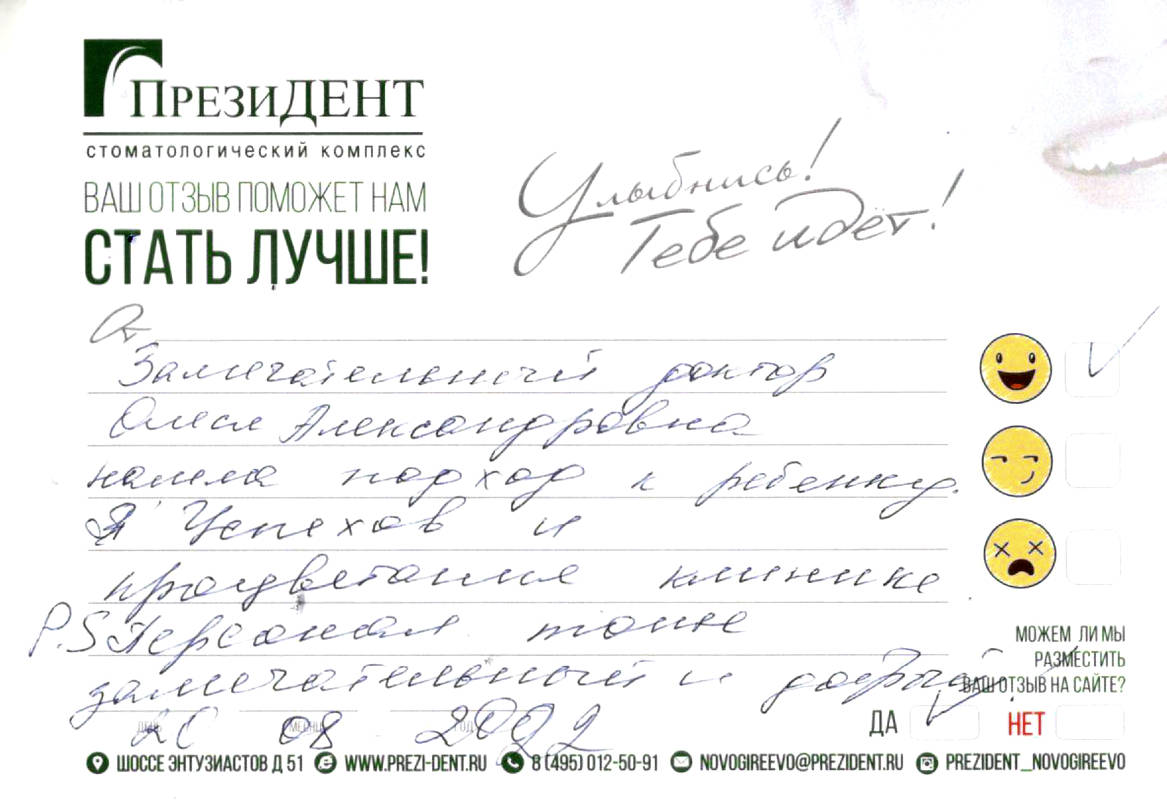 ПРЕЗИДЕНТ
стоматологический комплекс
ВАШ ОТЗЫВ ПОМОЖЕТ НАМ
СТАТЬ ЛУЧШЕ!
Улыбнись!
Тебе идёт!
Замечательный доктор
Олеся Александровна
нашла подход к ребенку.
Успехов и
процветания клинике
P.S Персонал тоже
замечательный и добрый
МОЖЕМ ЛИ МЫ
РАЗМЕСТИТЬ
ВАШ ОТЗЫВ НА САЙТЕ?
ДА НЕТ
20 08 2022
ШОССЕ ЭНТУЗИАСТОВ Д 51 WWW.PREZI-DENT.RU 8 (495) 012-50-91 NOVOGIREEVO@PREZIDENT.RU PREZIDENT_NOVOGIREEVO